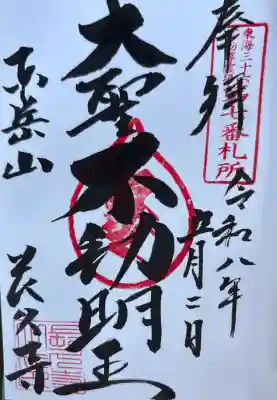 奉拝
東海三十六不動尊霊場
第七番札所
令和八年
五月二日
大聖不動明王
東岳山
長久寺